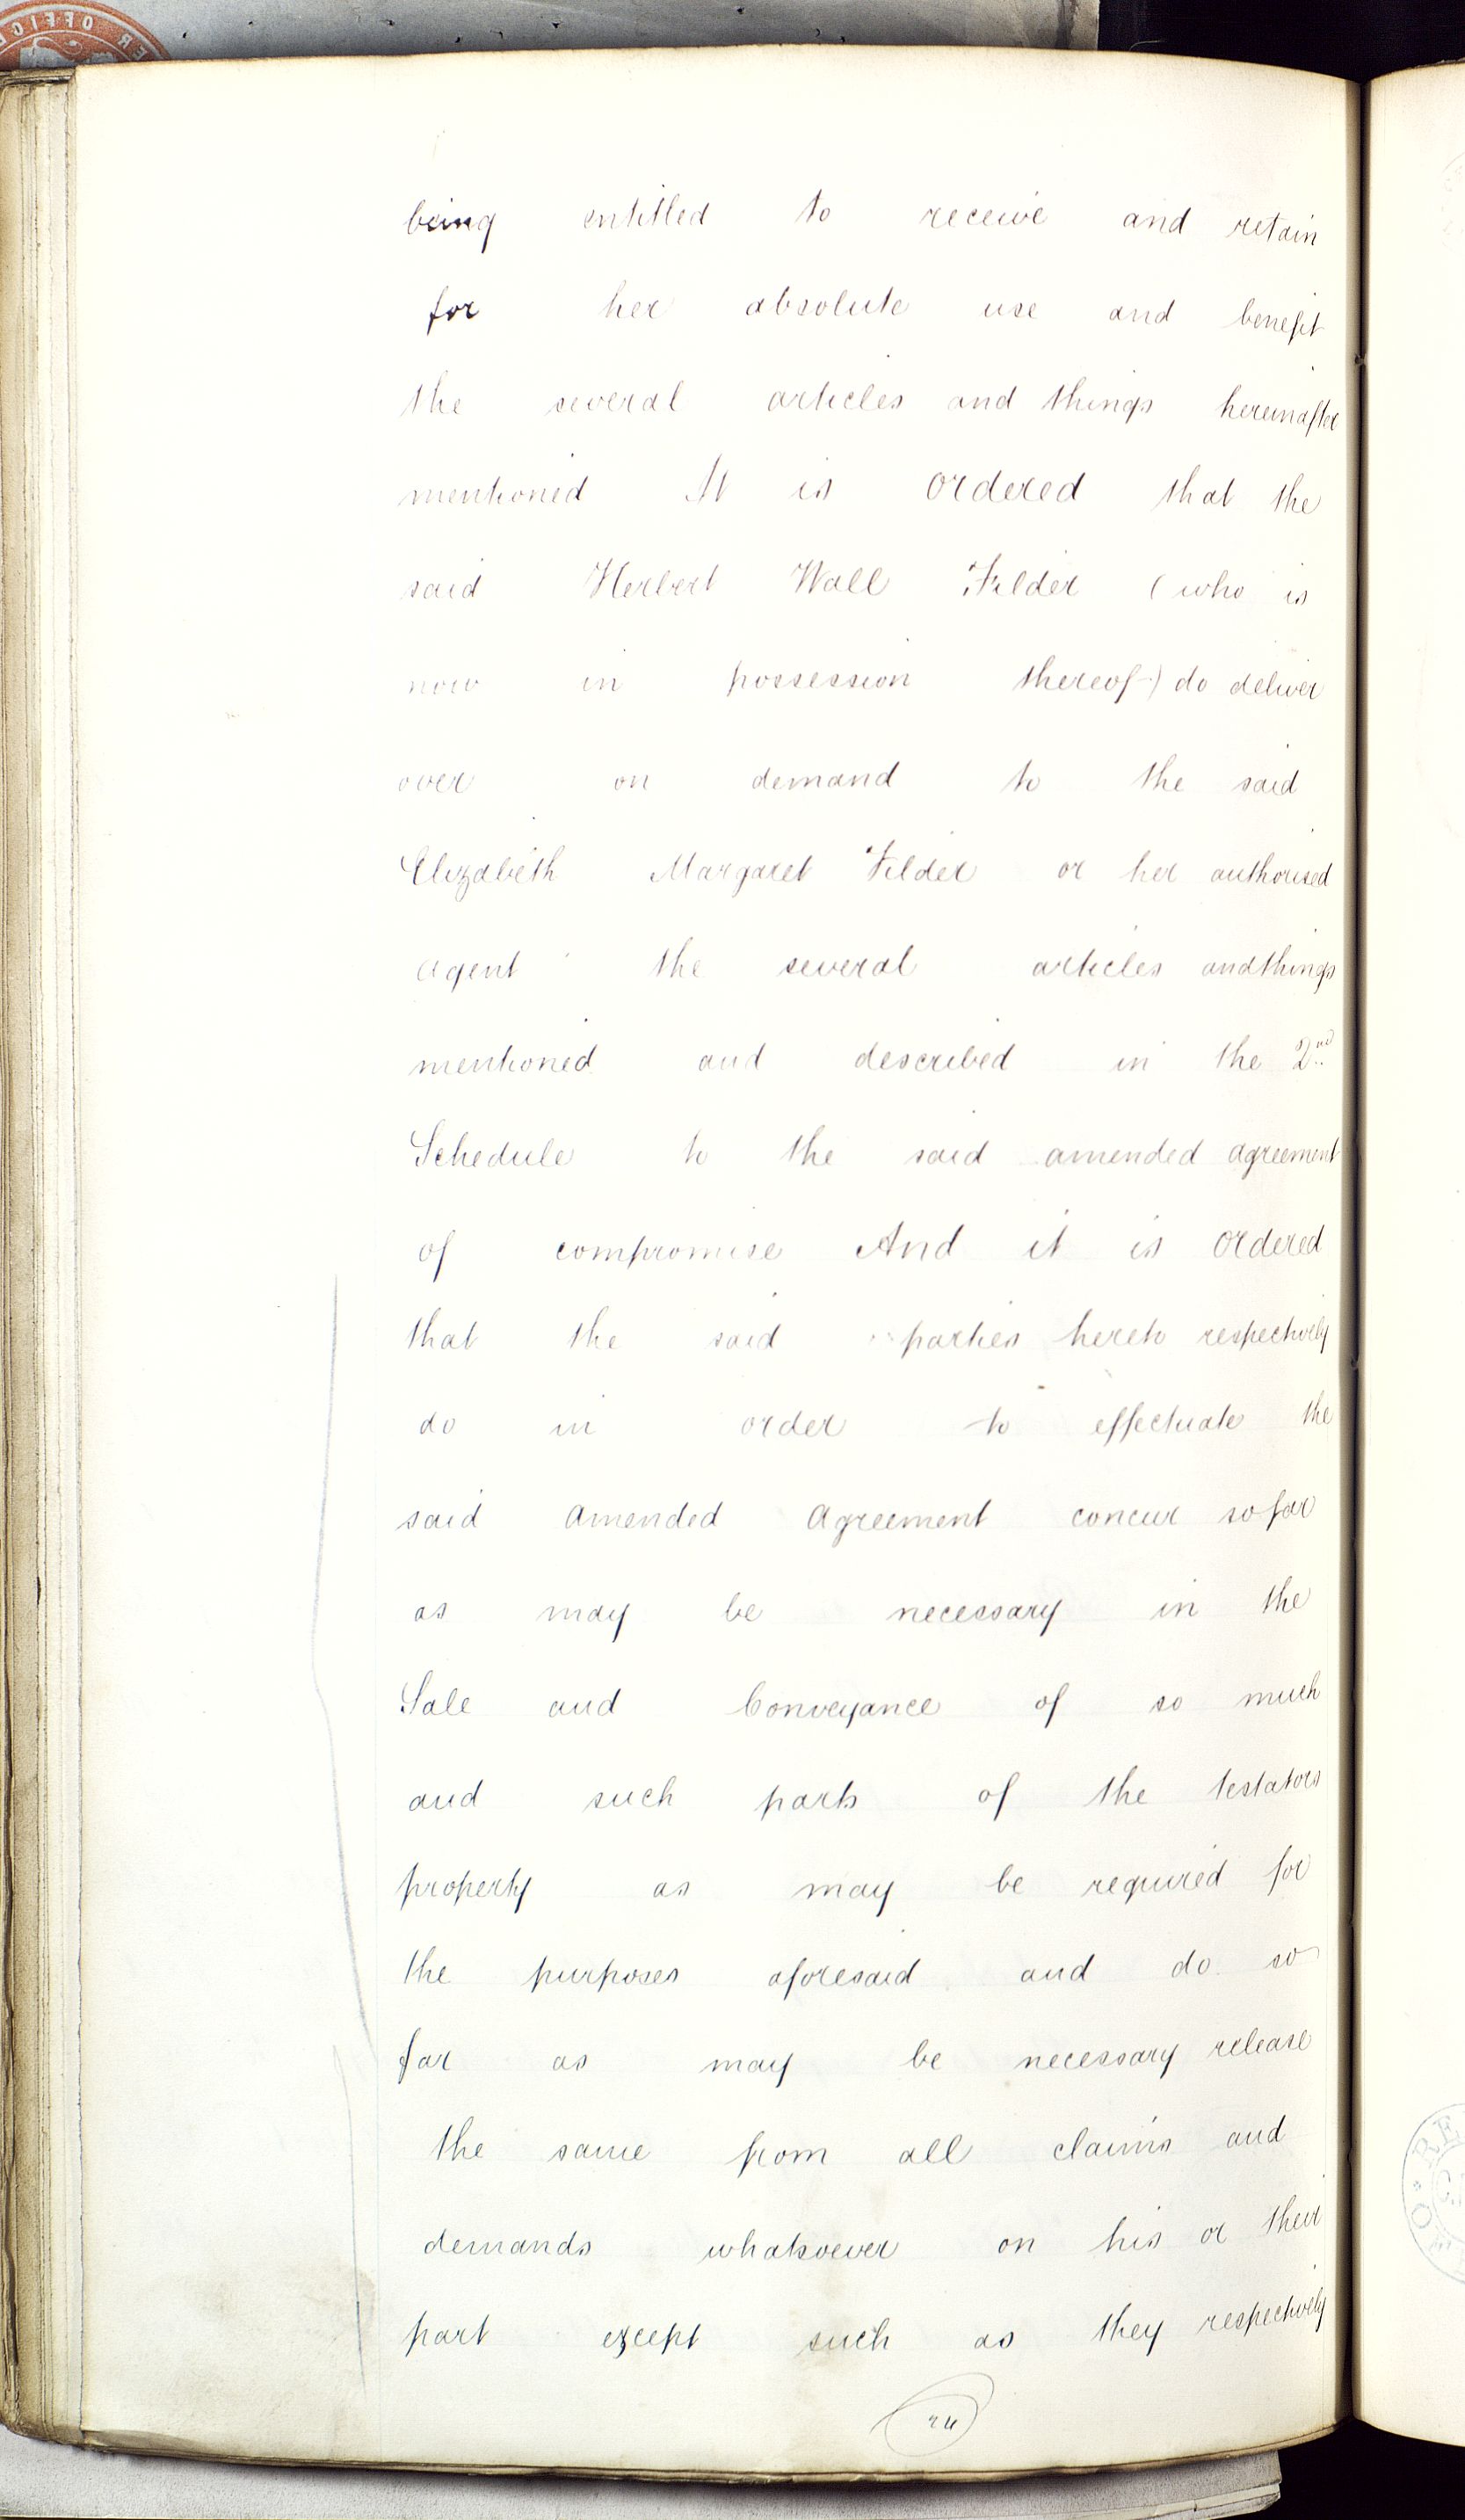 being entitled to receive and retain
for her absolute use and benefit
the several articles and things hereinafter
mentioned It is Ordered that the
said Herbert Wall Filder (who is
now in possession thereof) do deliver
over on demand to the said
Elizabeth Margaret Filder or her authorised
agent the several articles and things
mentioned and described in the 2nd
Schedule to the said amended agreement
of compromise And it is Ordered
that the said parties hereto respectively
do in order to effectuate the
said Amended Agreement concur so far
as may be necessary in the
Sale and Conveyance of so much
and such parts of the testators
property as may be required for
the purposes aforesaid and do so
far as may be necessary release
the same from all claims and
demands whatsoever on his or their
part except such as they respectively